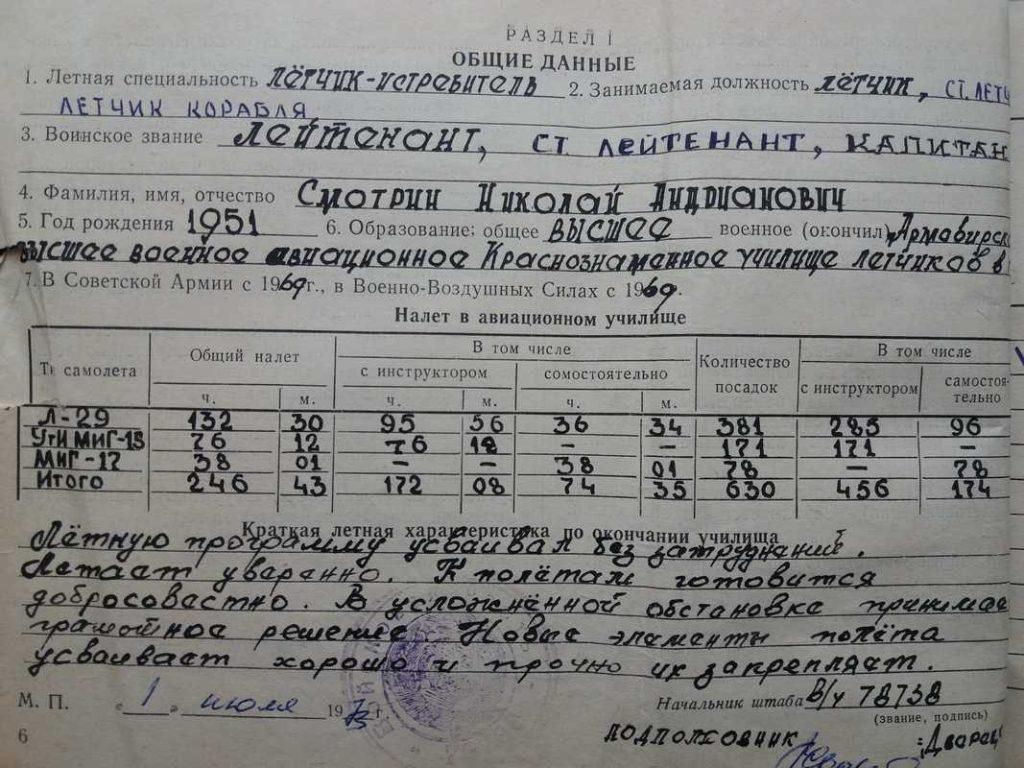 РАЗДЕЛ I
ОБЩИЕ ДАННЫЕ
1. Летная специальность лётчик-истребитель 2. Занимаемая должность лётчик, ст. летч
летчик корабля
3. Воинское звание лейтенант, ст. лейтенант, капитан
4. Фамилия, имя, отчество Смотрин Николай Андрианович
5. Год рождения 1951 6. Образование: общее высшее военное (окончил) Армавирск
высшее военное авиационное Краснознаменное училище летчиков в
7. В Советской Армии с 1969 г., в Военно-Воздушных Силах с 1969.
Налет в авиационном училище
Тип самолета Общий налет В том числе Количество посадок В том числе
с инструктором самостоятельно с инструктором самостоятельно
ч. м. ч. м. ч. м.
Л-29 132 30 95 56 36 34 381 285 96
УТИ МИГ-15 76 12 76 12 – – 171 171 –
МИГ-17 38 01 – – 38 01 78 – 78
Итого 246 43 172 08 74 35 630 456 174
Краткая летная характеристика по окончании училища
Лётную программу усваивал без затруднений.
Летает уверенно. К полётам готовится
добросовестно. В усложнённой обстановке принимае
грамотное решение. Новые элементы полёта
усваивает хорошо и прочно их закрепляет.
М. П. „1" июля 1973 г. Начальник штаба в/ч 78738
(звание, подпись)
6 подполковник